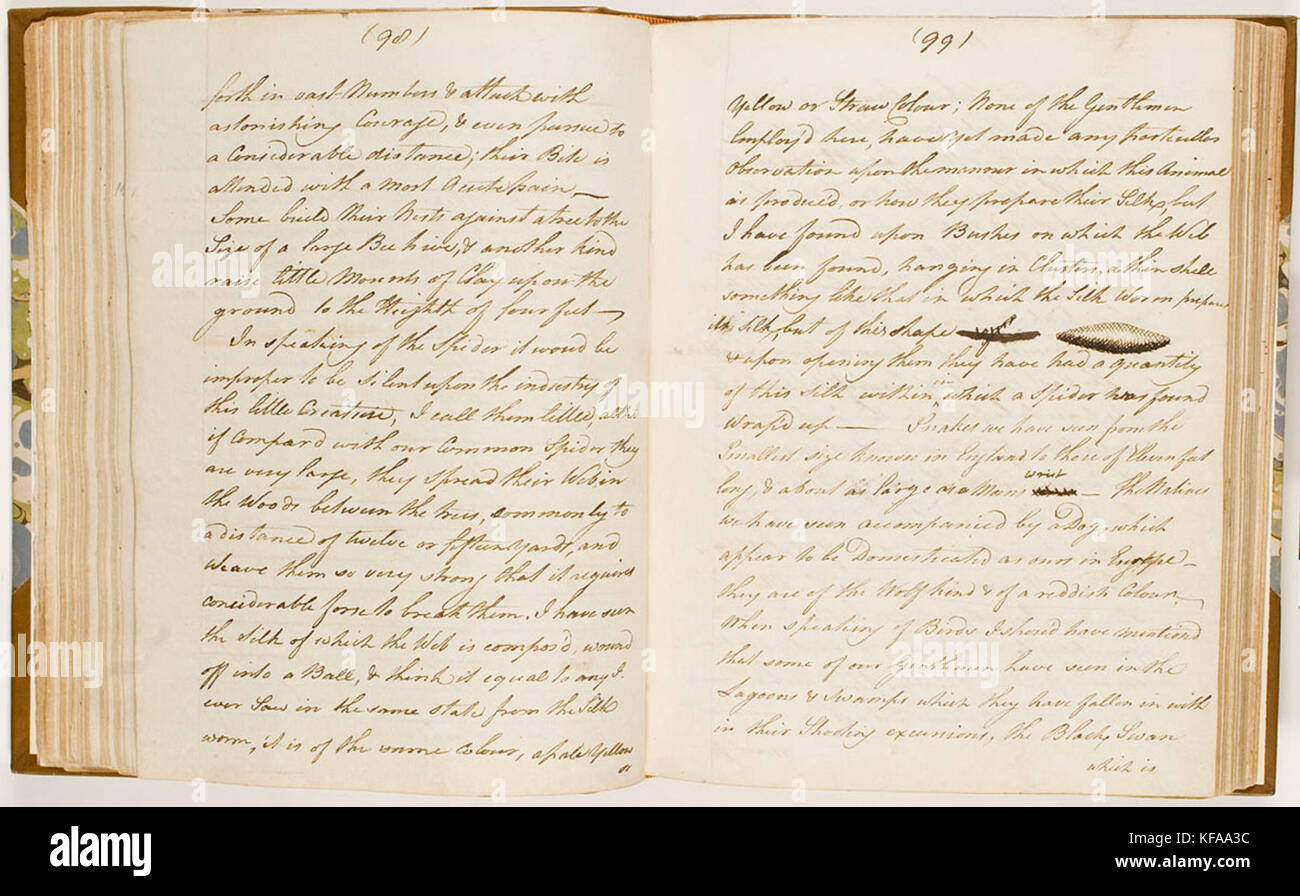 (98)
forth in vast Numbers & attack with
astonishing Courage, & even pursue to
a Considerable distance; their Bite is
attended with a most Acute pain —
Some build their Nests against a tree to the
Size of a large Bee hive, & another kind
raise little Mounts of Clay upon the
ground to the Heighth of four feet —
In speaking of the Spider it would be
improper to be silent upon the industry of
this little Creature, I call them little, altho
if Compard with our Common Spider they
are very large, they spread their Web in
the Woods between the trees, commonly to
a distance of twelve or fifteen yards, and
weave them so very strong that it requires
considerable force to break them. I have seen
the Silk of which the Web is compos'd, wound
off into a Ball, & think it equal to any I
ever Saw in the same state from the Silk
worm, it is of the same Colour, a pale Yellow
or
(99)
Yellow or Straw Colour; None of the Gentlemen
Employ'd here, have yet made any particular
Observation upon the manner in which this Animal
is produced, or how they prepare their Silk, but
I have found upon Bushes on which the Web
has been found, hanging in Clusters, a thin shell
something like that in which the Silk Worm prepares
its silk, but of this shape
& upon opening them they have had a quantity
of this Silk within, in which a Spider was found
Wrap'd up — Snakes we have seen from the
Smallest size known in England to those of Eleven feet
long, & about as large as a Mans wrist — The Natives
we have seen accompanied by a Dog, which
appear to be Domesticated as ours in Europe —
they are of the Wolf kind & of a reddish Colour —
When speaking of Birds I shoud have mentiond
that some of our Gentlemen have seen in the
Lagoons & Swamps which they have fallen in with
in their Shooting excursions, the Black Swan
which is
alamy
Image ID: KFAA3C
www.alamy.com